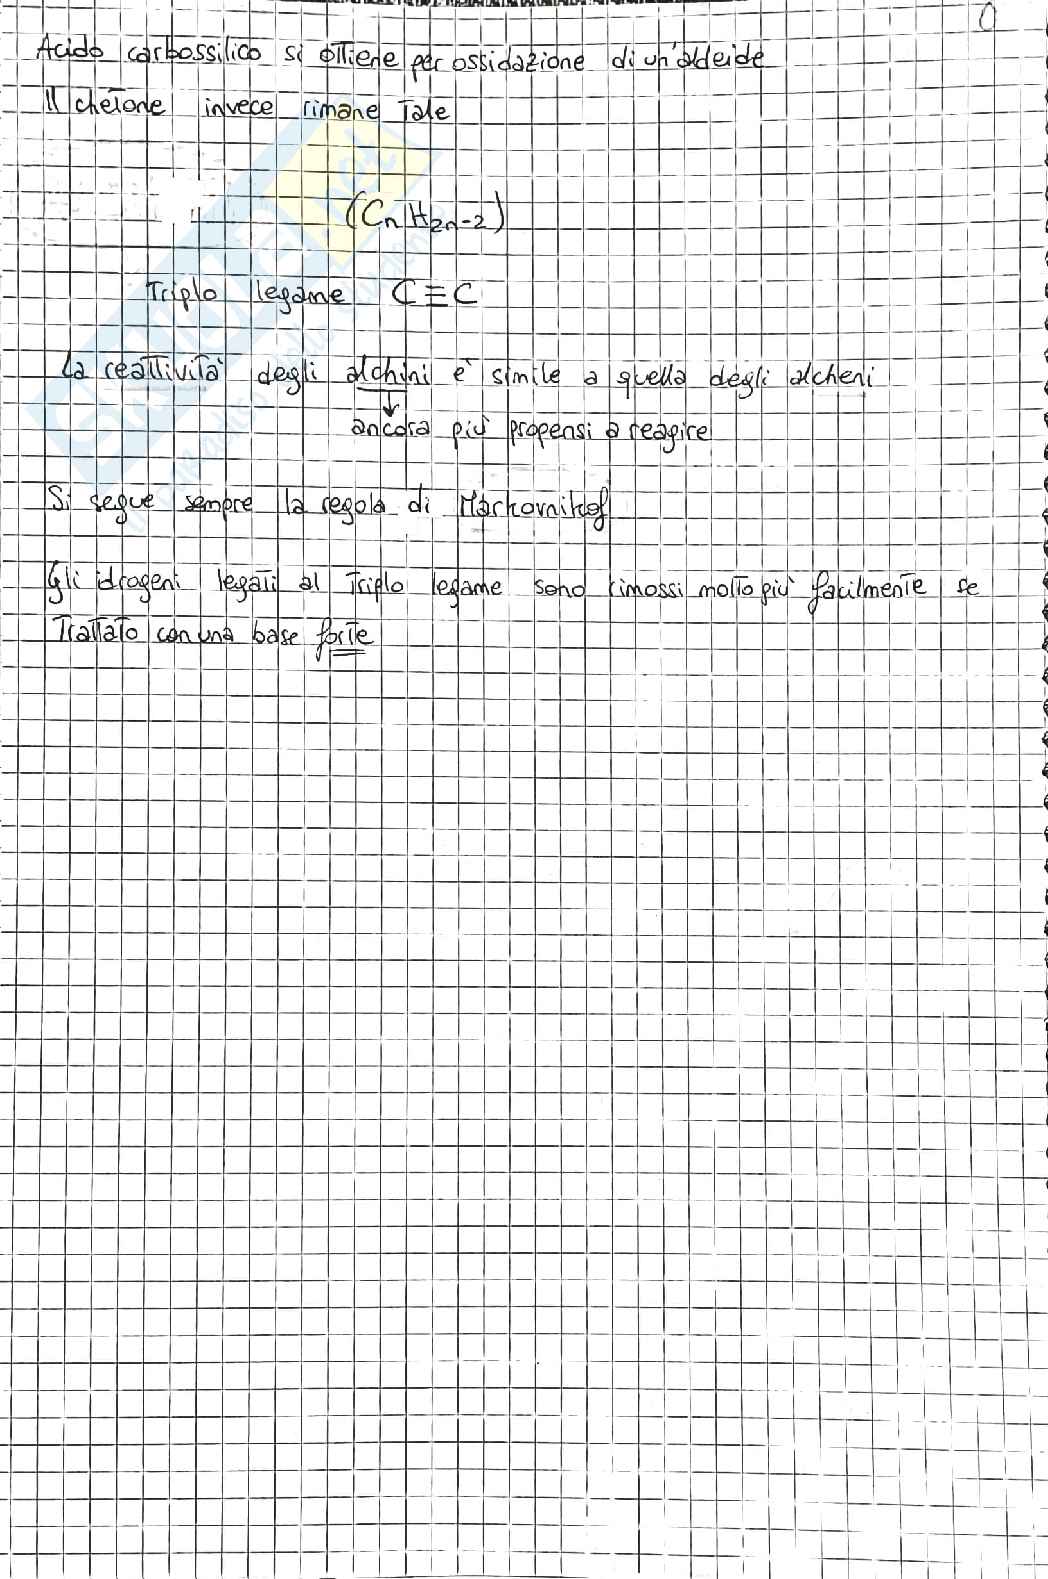 Acido carbossilico si ottiene per ossidazione di un'aldeide
Il chetone invece rimane tale
(CnH2n-2)
Triplo legame C≡C
La reattività degli alchini è simile a quella degli alcheni
↓
ancora più propensi a reagire
Si segue sempre la regola di Markovnikof
Gli idrogeni legati al triplo legame sono rimossi molto più facilmente se
trattato con una base forte